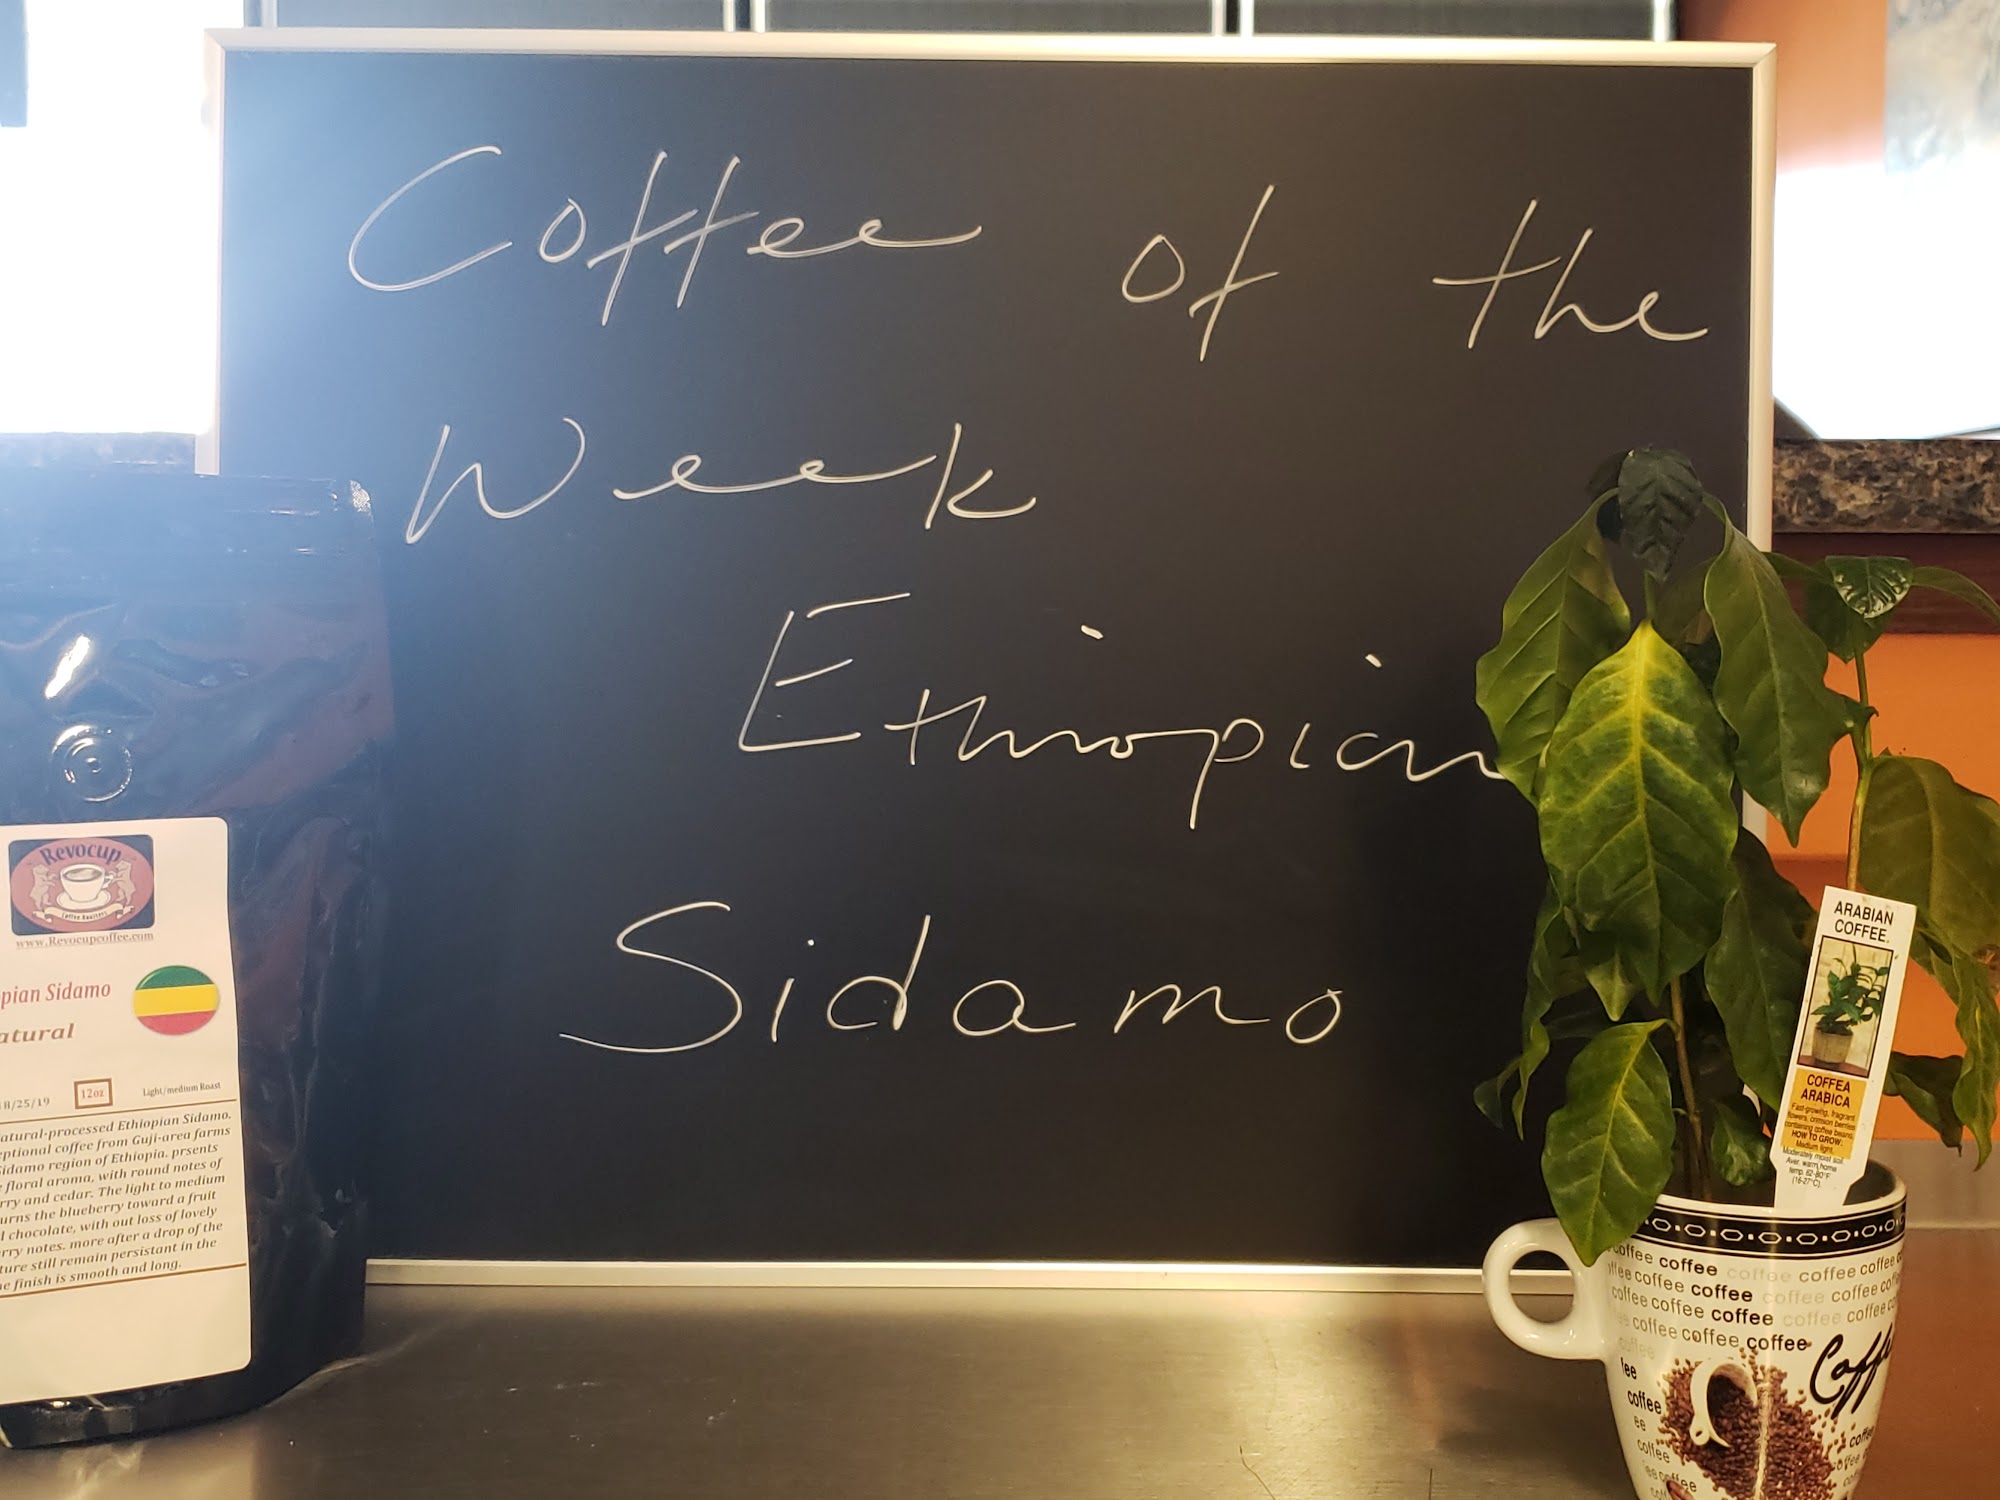 Coffee of the
Week
Ethiopian
Sidamo
Revocup
Coffee Roasters
www.Revocupcoffee.com
pian Sidamo
atural
8/25/19
12oz
Light/medium Roast
atural-processed Ethiopian Sidamo.
eptional coffee from Guji-area farms
Sidamo region of Ethiopia. prsents
e floral aroma, with round notes of
rry and cedar. The light to medium
urns the blueberry toward a fruit
l chocolate, with out loss of lovely
rry notes. more after a drop of the
ture still remain persistant in the
he finish is smooth and long.
ARABIAN
COFFEE
COFFEA
ARABICA
Fast-growing, fragrant
flowers, crimson berries
containing coffee beans.
HOW TO GROW:
Medium light.
Moderately moist soil.
Aver. warm home
temp. 62-80°F
(16-27°C).
coffee coffee coffee coffee coffee
ffee coffee coffee coffee coffee
coffee coffee coffee coffee coffee
coffee coffee coffee
coffee
fee
coffee
ee
coffee
coffee
Coffe
coffee
coffee